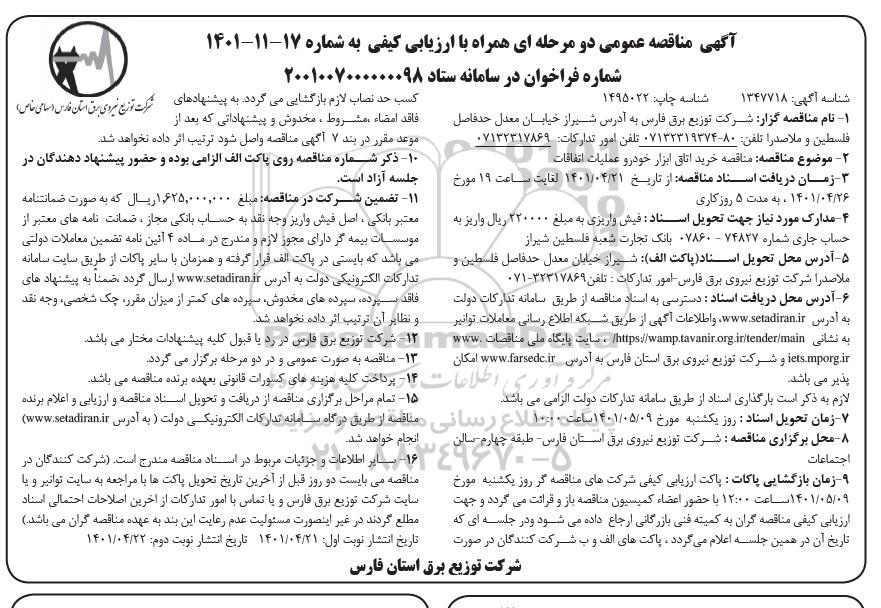 آگهی مناقصه عمومی دو مرحله ای همراه با ارزیابی کیفی به شماره ۱۷-۱۱-۱۴۰۱
شماره فراخوان در سامانه ستاد ۲۰۰۱۰۰۷۰۰۰۰۰۰۰۹۸
شرکت توزیع نیروی برق استان فارس (سهامی خاص)
شناسه آگهی: ۱۳۴۷۷۱۸ شناسه چاپ: ۱۴۹۵۰۲۲
۱- نام مناقصه گزار: شرکت توزیع برق فارس به آدرس شیراز خیابان معدل حدفاصل
فلسطین و ملاصدرا تلفن: ۸۰-۰۷۱۳۲۳۱۹۳۷۴ تلفن امور تدارکات: ۰۷۱۳۲۳۱۷۸۶۹
۲- موضوع مناقصه: مناقصه خرید اتاق ابزار خودرو عملیات اتفاقات
۳-زمان دریافت اسناد مناقصه: از تاریخ ۱۴۰۱/۰۴/۲۱ لغایت ساعت ۱۹ مورخ
۱۴۰۱/۰۴/۲۶ ، به مدت ۵ روزکاری
۴-مدارک مورد نیاز جهت تحویل اسناد : فیش واریزی به مبلغ ۲۲۰۰۰۰ ریال واریز به
حساب جاری شماره ۷۴۸۲۷ - ۰۷۸۶۰ بانک تجارت شعبه فلسطین شیراز
۵-آدرس محل تحویل اسناد(پاکت الف): شیراز خیابان معدل حدفاصل فلسطین و
ملاصدرا شرکت توزیع نیروی برق فارس-امور تدارکات : تلفن۳۲۳۱۷۸۶۹-۰۷۱
۶-آدرس محل دریافت اسناد : دسترسی به اسناد مناقصه از طریق سامانه تدارکات دولت
به آدرس www.setadiran.ir، واطلاعات آگهی از طریق شبکه اطلاع رسانی معاملات توانیر
به نشانی https://wamp.tavanir.org.ir/tender/main/ ، سایت پایگاه ملی مناقصات www.
iets.mporg.ir و شرکت توزیع نیروی برق استان فارس به آدرس www.farsedc.ir امکان
پذیر می باشد.
لازم به ذکر است بارگذاری اسناد از طریق سامانه تدارکات دولت الزامی می باشد.
۷-زمان تحویل اسناد : روز یکشنبه مورخ ۱۴۰۱/۰۵/۰۹ساعت ۱۰:۰۰
۸-محل برگزاری مناقصه : شرکت توزیع نیروی برق استان فارس- طبقه چهارم-سالن
اجتماعات
۹-زمان بازگشایی پاکات : پاکت ارزیابی کیفی شرکت های مناقصه گر روز یکشنبه مورخ
۱۴۰۱/۰۵/۰۹ساعت ۱۲:۰۰ با حضور اعضاء کمیسیون مناقصه باز و قرائت می گردد و جهت
ارزیابی کیفی مناقصه گران به کمیته فنی بازرگانی ارجاع داده می شود ودر جلسه ای که
تاریخ آن در همین جلسه اعلام می‌گردد ، پاکت های الف و ب شرکت کنندگان در صورت
کسب حد نصاب لازم بازگشایی می گردد. به پیشنهادهای
فاقد امضاء ،مشروط ، مخدوش و پیشنهاداتی که بعد از
موعد مقرر در بند ۷ آگهی مناقصه واصل شود ترتیب اثر داده نخواهد شد.
۱۰- ذکر شماره مناقصه روی پاکت الف الزامی بوده و حضور پیشنهاد دهندگان در
جلسه آزاد است.
۱۱- تضمین شرکت در مناقصه: مبلغ ۱,۶۲۵,۰۰۰,۰۰۰ریال که به صورت ضمانتنامه
معتبر بانکی ، اصل فیش واریز وجه نقد به حساب بانکی مجاز ، ضمانت نامه های معتبر از
موسسات بیمه گر دارای مجوز لازم و مندرج در ماده ۴ آئین نامه تضمین معاملات دولتی
می باشد که بایستی در پاکت الف قرار گرفته و همزمان با سایر پاکات از طریق سایت سامانه
تدارکات الکترونیکی دولت به آدرس www.setadiran.ir ارسال گردد ،ضمناً به پیشنهاد های
فاقد سپرده، سپرده های مخدوش، سپرده های کمتر از میزان مقرر، چک شخصی، وجه نقد
و نظایر آن ترتیب اثر داده نخواهد شد.
۱۲- شرکت توزیع برق فارس در رد یا قبول کلیه پیشنهادات مختار می باشد.
۱۳- مناقصه به صورت عمومی و در دو مرحله برگزار می گردد.
۱۴- پرداخت کلیه هزینه های کسورات قانونی بعهده برنده مناقصه می باشد.
۱۵- تمام مراحل برگزاری مناقصه از دریافت و تحویل اسناد مناقصه و ارزیابی و اعلام برنده
مناقصه از طریق درگاه سامانه تدارکات الکترونیکی دولت ( به آدرس www.setadiran.ir)
انجام خواهد شد.
۱۶- سایر اطلاعات و جزئیات مربوط در اسناد مناقصه مندرج است. (شرکت کنندگان در
مناقصه می بایست دو روز قبل از آخرین تاریخ تحویل پاکت ها با مراجعه به سایت توانیر و یا
سایت شرکت توزیع برق فارس و یا تماس با امور تدارکات از اخرین اصلاحات احتمالی اسناد
مطلع گردند در غیر اینصورت مسئولیت عدم رعایت این بند به عهده مناقصه گران می باشد.)
تاریخ انتشار نوبت اول: ۱۴۰۱/۰۴/۲۱ تاریخ انتشار نوبت دوم: ۱۴۰۱/۰۴/۲۲
شرکت توزیع برق استان فارس